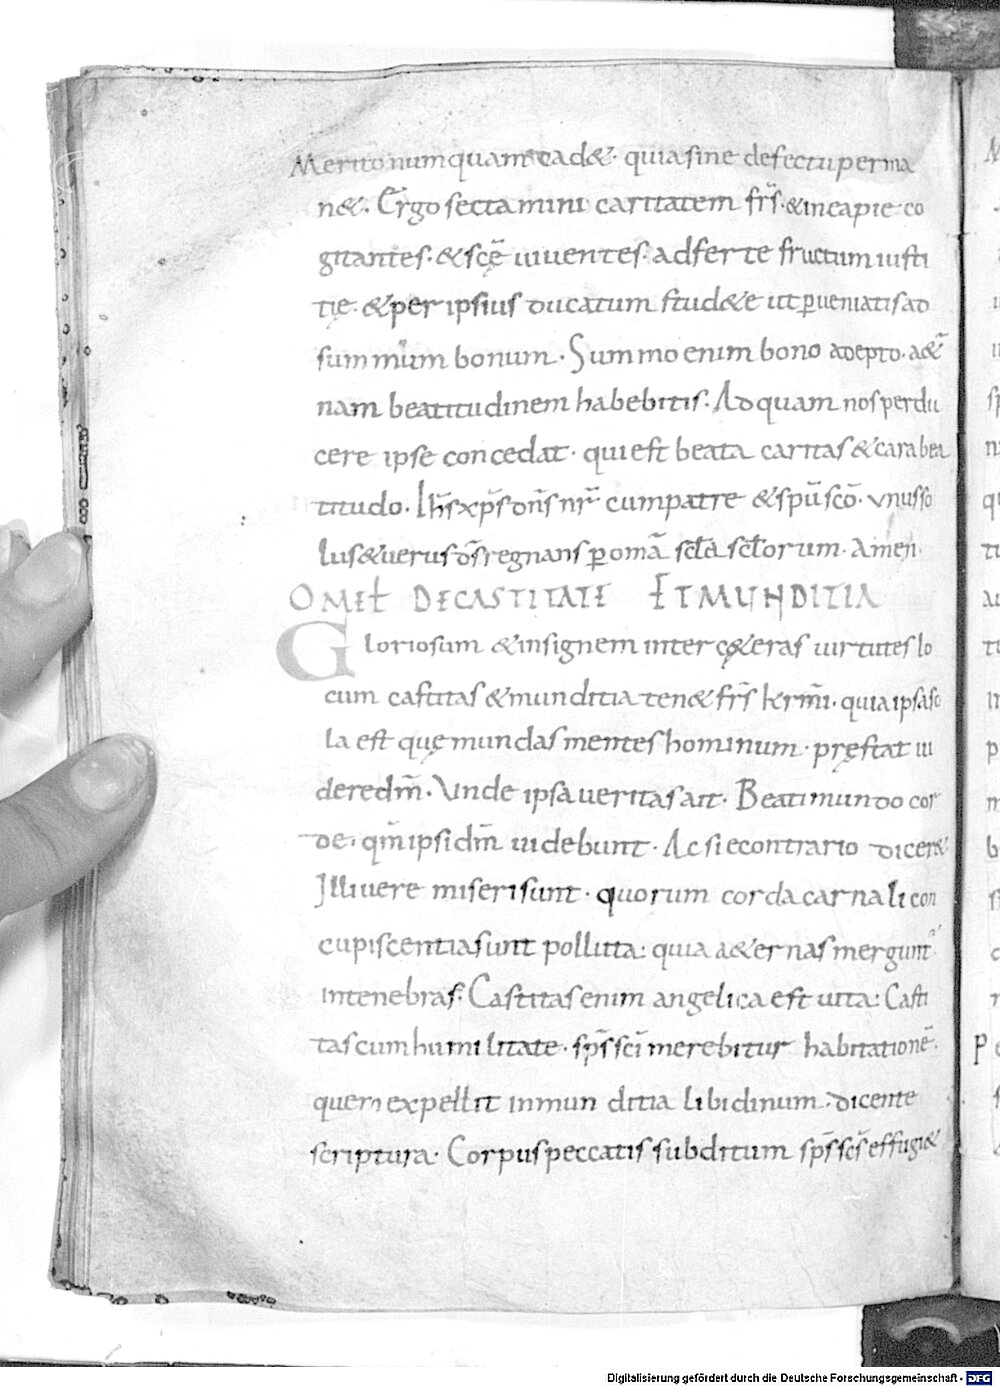 Merito numquam cad&. quia sine defectu perma
n&. Ergo sectamini caritatem fr̄s. & in ea pie co
gitantes. & sc̄ę uiuentes. adferte fructum iusti
tię. & per ipsius ducatum stud&e ut ꝑueniatis ad
summum bonum. Summo enim bono adepto. a&̄
nam beatitudinem habebitis. Ad quam nos perdu
cere ipse concedat. qui est beata caritas & cara bea
titudo. Ih̄s xp̄s dn̄s nr̄ cum patre & sp̄u sc̄o. unus so
lus & uerus d̄s regnans ꝑ om̄a sc̄la sc̄lorum. Amen.
OMEL̄ DE CASTITATE ET MUNDITIA
Gloriosum & insignem inter c&eras uirtutes lo
cum castitas & munditia ten& fr̄s kr̄mi. quia ipsa so
la est quę mundas mentes hominum. pręstat ui
dere dm̄. Unde ipsa ueritas ait. Beati mundo cor
de. qm̄ ipsi dm̄ uidebunt. Ac si e contrario dicer&
Illi uere miseri sunt. quorum corda carnali con
cupiscentia sunt pollutta: quia a&ernas mergunt᷑
in tenebras. Castitas enim angelica est uita: Casti
tas cum humilitate. sp̄s sc̄i merebitur habitationē.
quem expellit inmunditia libidinum. dicente
scriptura. Corpus peccatis subditum sp̄s sc̄s effugi&
Digitalisierung gefördert durch die Deutsche Forschungsgemeinschaft - DFG